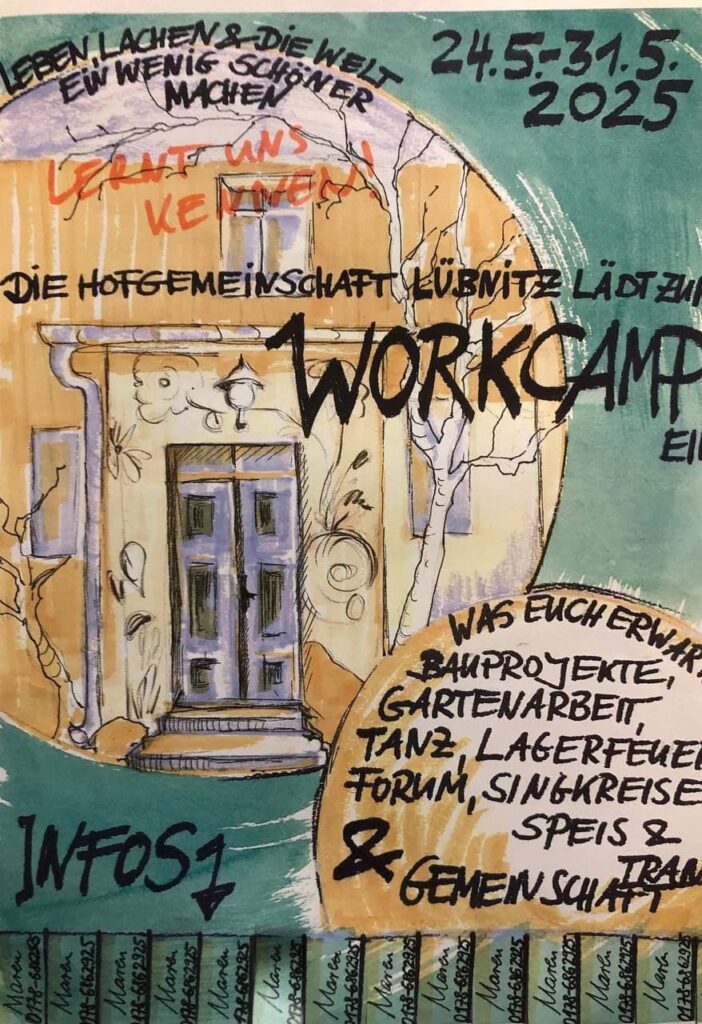 LEBEN, LACHEN & DIE WELT
EIN WENIG SCHÖNER
MACHEN
24.5.-31.5.
2025
LERNT UNS
KENNEN!
DIE HOFGEMEINSCHAFT LÜBNITZ LÄDT ZUM
WORKCAMP
EIN
WAS EUCH ERWAR
BAUPROJEKTE,
GARTENARBEIT,
TANZ, LAGERFEUER
FORUM, SINGKREISE
SPEIS &
TRAN
& GEMEINSCHAFT
INFOS
Maren
0178-6862925
Maren
0178-6862925
Maren
0178-6862925
Maren
0178-6862925
Maren
0178-6862925
Maren
0178-6862925
Maren
0178-6862925
Maren
0178-6862925
Maren
0178-6862925
Maren
0178-6862925
Maren
0178-6862925
Maren
0178-6862925
Maren
0178-6862925